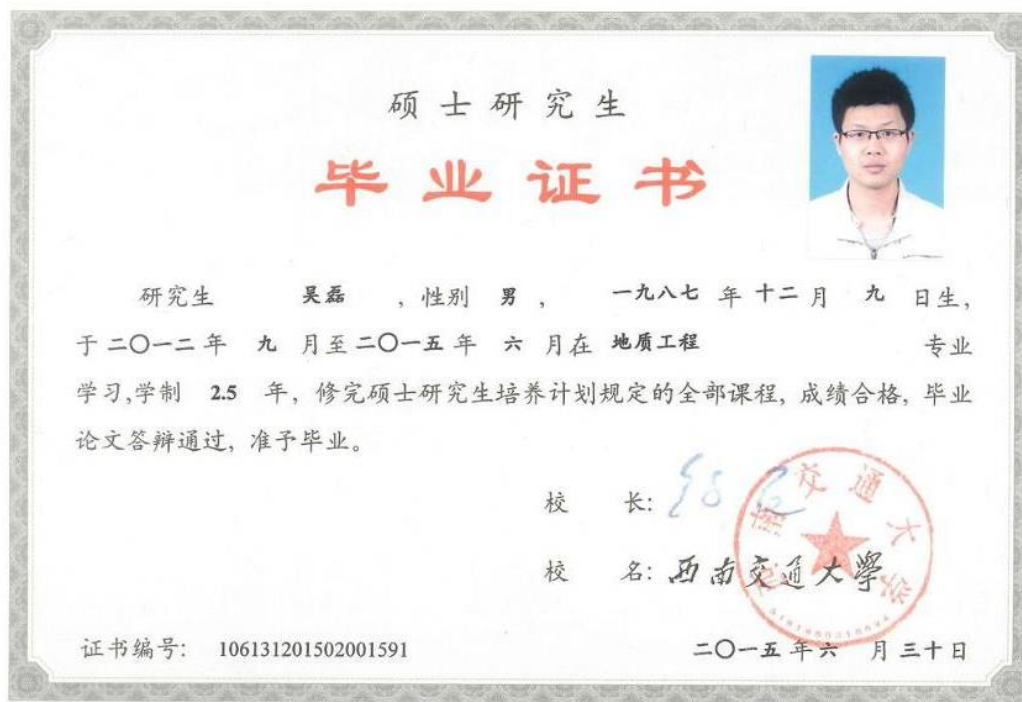 硕士研究生
毕业证书
研究生 吴磊 ，性别 男 ， 一九八七 年 十二 月 九 日生，
于 二〇一二 年 九 月至 二〇一五 年 六 月在 地质工程 专业
学习,学制 2.5 年，修完硕士研究生培养计划规定的全部课程，成绩合格，毕业
论文答辩通过，准予毕业。
校 长:
校 名: 西南交通大學
西南交通大学
证书编号: 106131201502001591
二〇一五 年 六 月 三十 日